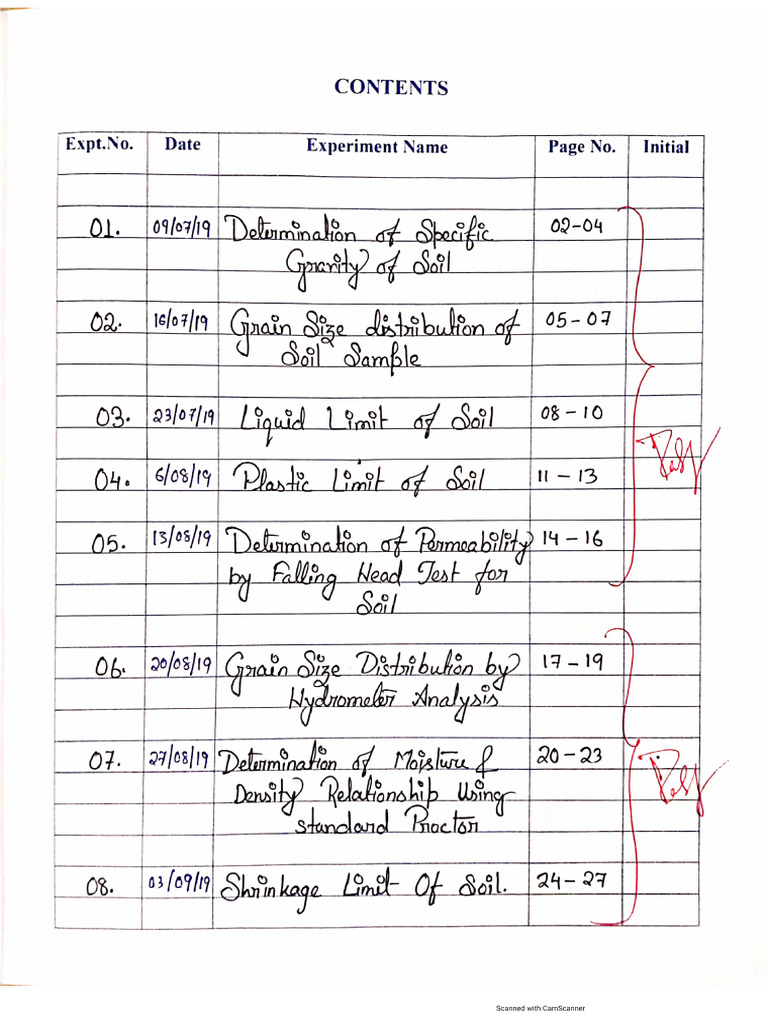 CONTENTS
Expt.No. Date Experiment Name Page No. Initial
01. 09/07/19 Determination of Specific 02-04
Gravity of Soil
02. 16/07/19 Grain Size distribution of 05-07
Soil Sample
03. 23/07/19 Liquid Limit of Soil 08-10
04. 6/08/19 Plastic Limit of Soil 11-13
05. 13/08/19 Determination of Permeability 14-16
by Falling Head Test for
Soil
06. 20/08/19 Grain Size Distribution by 17-19
Hydrometer Analysis
07. 27/08/19 Determination of Moisture & 20-23
Density Relationship Using
standard Proctor
08. 03/09/19 Shrinkage Limit Of Soil. 24-27
Scanned with CamScanner